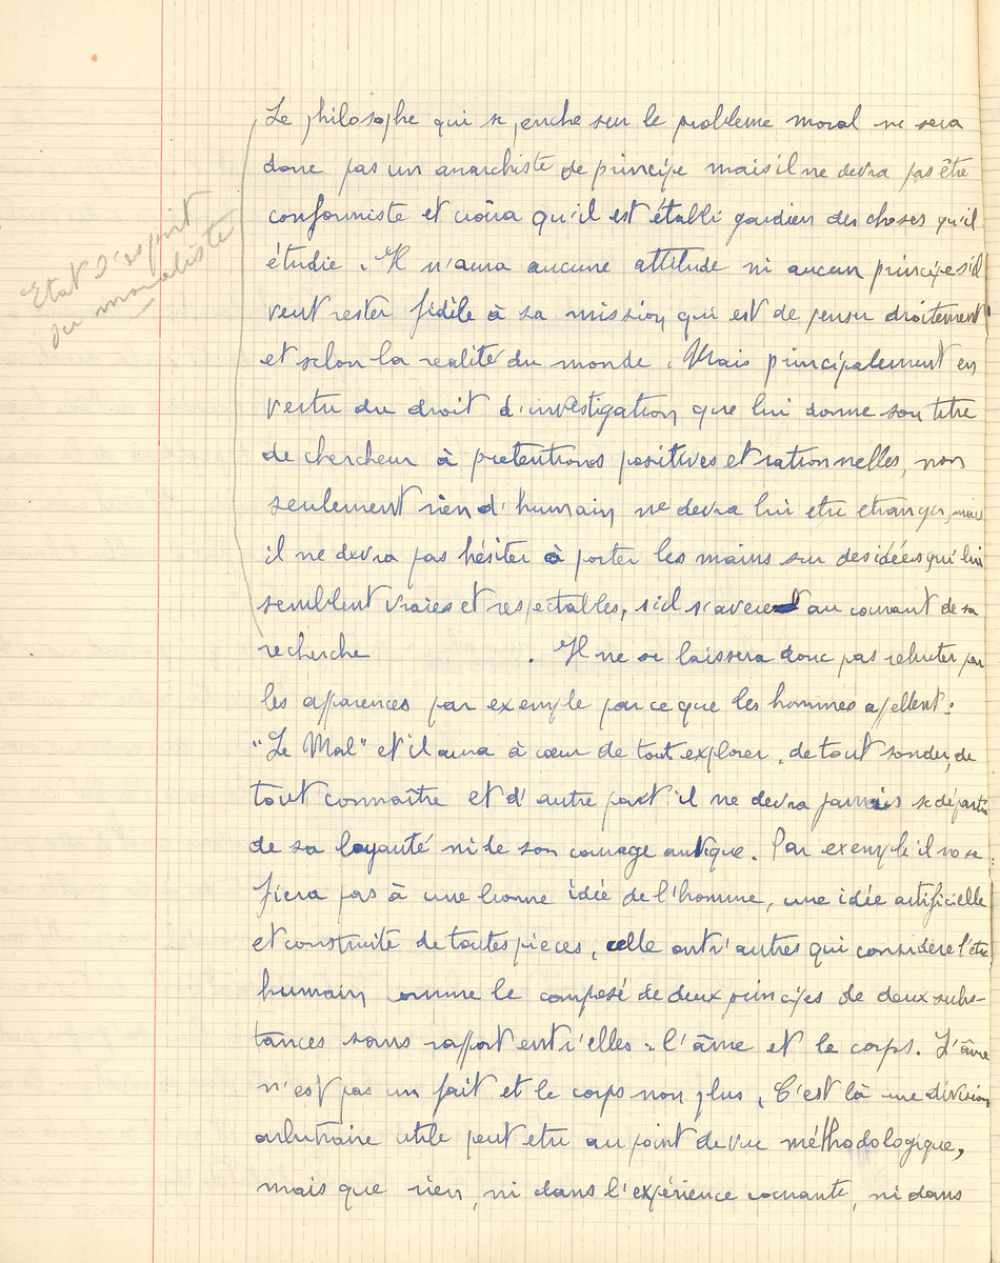 Le philosophe qui se penche sur le problème moral ne sera
donc pas un anarchiste de principe mais il ne devra pas être
conformiste et croira qu'il est établi gardien des choses qu'il
étudie. Il n'aura aucune attitude ni aucun principe s'il
veut rester fidèle à sa mission qui est de penser droitement
et selon la realité du monde. Mais principalement en
vertu du droit d'investigation que lui donne son titre
de chercheur à pretentions positives et rationnelles, non
seulement rien d'humain ne devra lui etre etranger, mais
il ne devra pas hésiter à porter les mains sur des idées qui lui
semblent vraies et respectables, s'il s'avere au courant de sa
recherche . Il ne se laissera donc pas rebuter par
les apparences par exemple par ce que les hommes appellent :
"Le Mal" et il aura à cœur de tout explorer, de tout sonder, de
tout connaître et d'autre part il ne devra jamais se départir
de sa loyauté ni de son courage antique. Par exemple il ne se
fiera pas à une bonne idée de l'homme, une idée artificielle
et construite de toutes pieces, celle entr'autres qui considère l'être
humain comme le composé de deux principes de deux subs-
tances sans rapport entr'elles : l'âme et le corps. L'âme
n'est pas un fait et le corps non plus, C'est là une division
arbitraire utile peut etre au point de vue méthodologique,
mais que rien, ni dans l'expérience courante, ni dans
Etat d'esprit
du moraliste